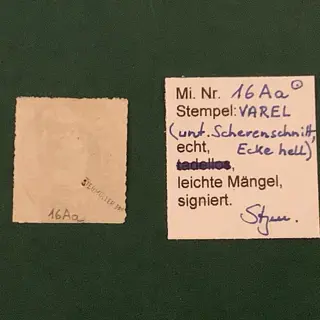 16Aa
Mi. Nr. 16Aa
Stempel: VAREL
(unt. Scherenschnitt,
echt, Ecke hell)
tadellos,
leichte Mängel,
signiert.